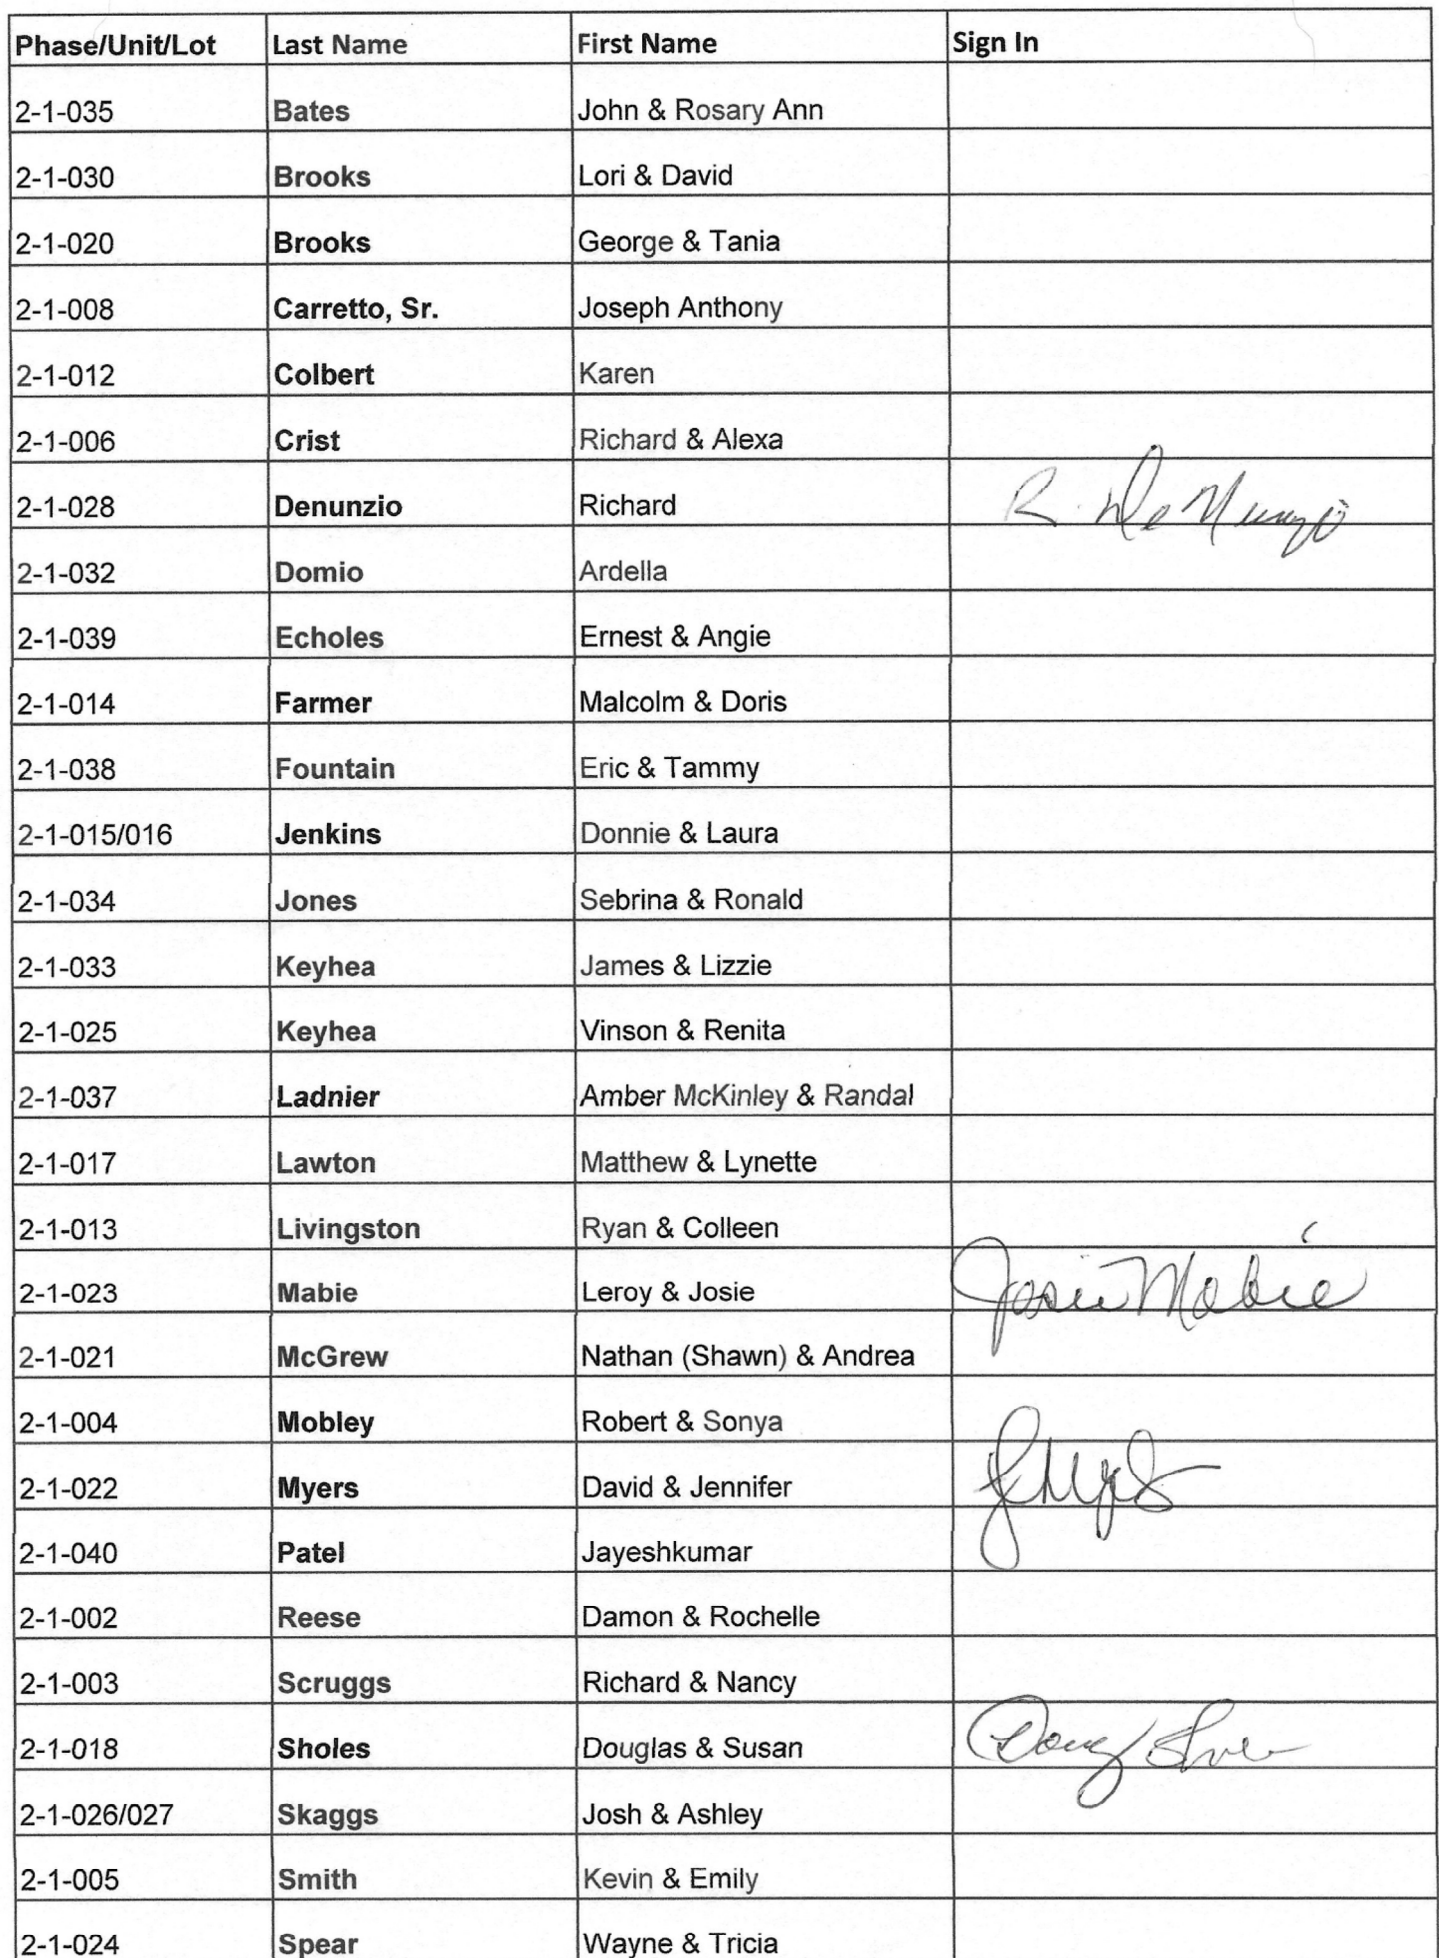 Phase/Unit/Lot Last Name First Name Sign In
2-1-035 Bates John & Rosary Ann
2-1-030 Brooks Lori & David
2-1-020 Brooks George & Tania
2-1-008 Carretto, Sr. Joseph Anthony
2-1-012 Colbert Karen
2-1-006 Crist Richard & Alexa
2-1-028 Denunzio Richard R. DeNunzio
2-1-032 Domio Ardella
2-1-039 Echoles Ernest & Angie
2-1-014 Farmer Malcolm & Doris
2-1-038 Fountain Eric & Tammy
2-1-015/016 Jenkins Donnie & Laura
2-1-034 Jones Sebrina & Ronald
2-1-033 Keyhea James & Lizzie
2-1-025 Keyhea Vinson & Renita
2-1-037 Ladnier Amber McKinley & Randal
2-1-017 Lawton Matthew & Lynette
2-1-013 Livingston Ryan & Colleen
2-1-023 Mabie Leroy & Josie Josie Mabie
2-1-021 McGrew Nathan (Shawn) & Andrea
2-1-004 Mobley Robert & Sonya
2-1-022 Myers David & Jennifer
2-1-040 Patel Jayeshkumar
2-1-002 Reese Damon & Rochelle
2-1-003 Scruggs Richard & Nancy
2-1-018 Sholes Douglas & Susan Doug
2-1-026/027 Skaggs Josh & Ashley
2-1-005 Smith Kevin & Emily
2-1-024 Spear Wayne & Tricia